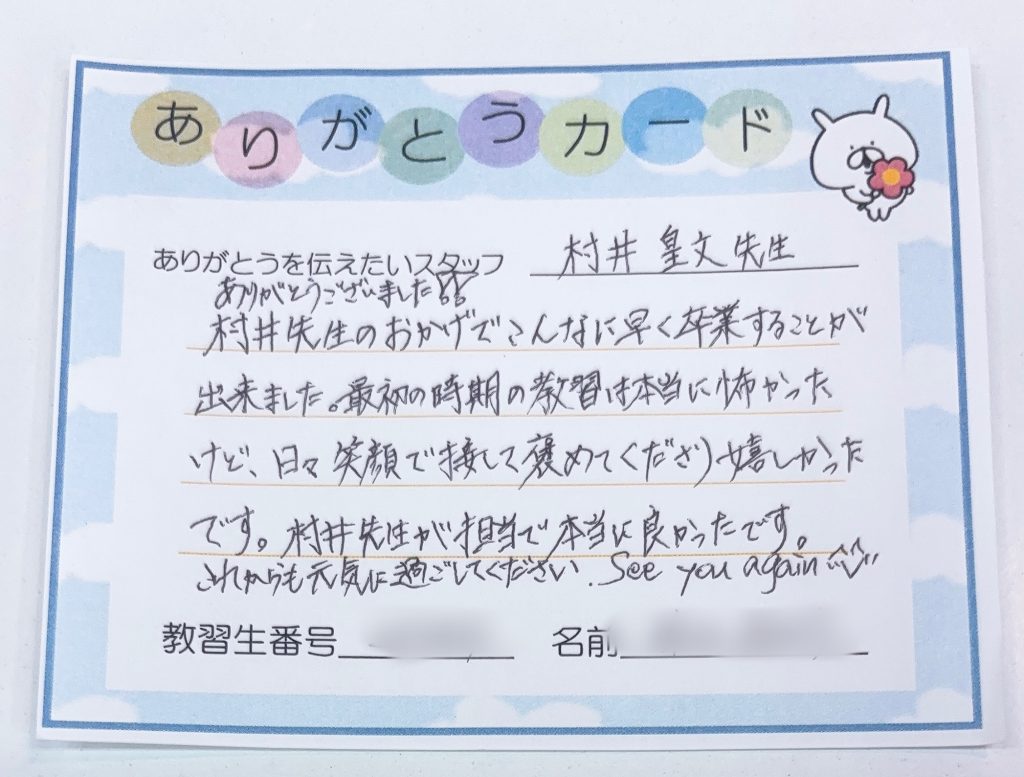 ありがとうカード
ありがとうを伝えたいスタッフ 村井 皇文先生
ありがとうございました!!
村井先生のおかげでこんなに早く卒業することが
出来ました。最初の時期の教習は本当に怖かった
けど、日々笑顔で接して褒めてくださり嬉しかった
です。村井先生が担当で本当に良かったです。
これからも元気に過ごしてください. See you again^^
教習生番号 名前